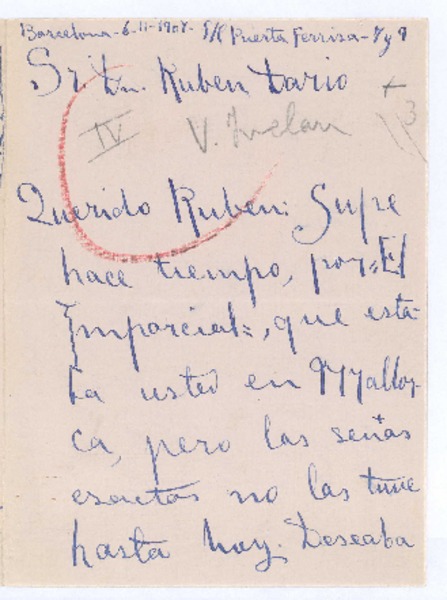 Barcelona-6-11-1907- S/C Puerta Ferrisa-7 y 9
Sr. Dn. Ruben Dario
+
IV V. Inclan 3
Querido Ruben: Supe
hace tiempo, por "El
Imparcial", que esta-
ba usted en Mallor-
ca, pero las señas
esactas no las tuve
hasta hoy. Deseaba